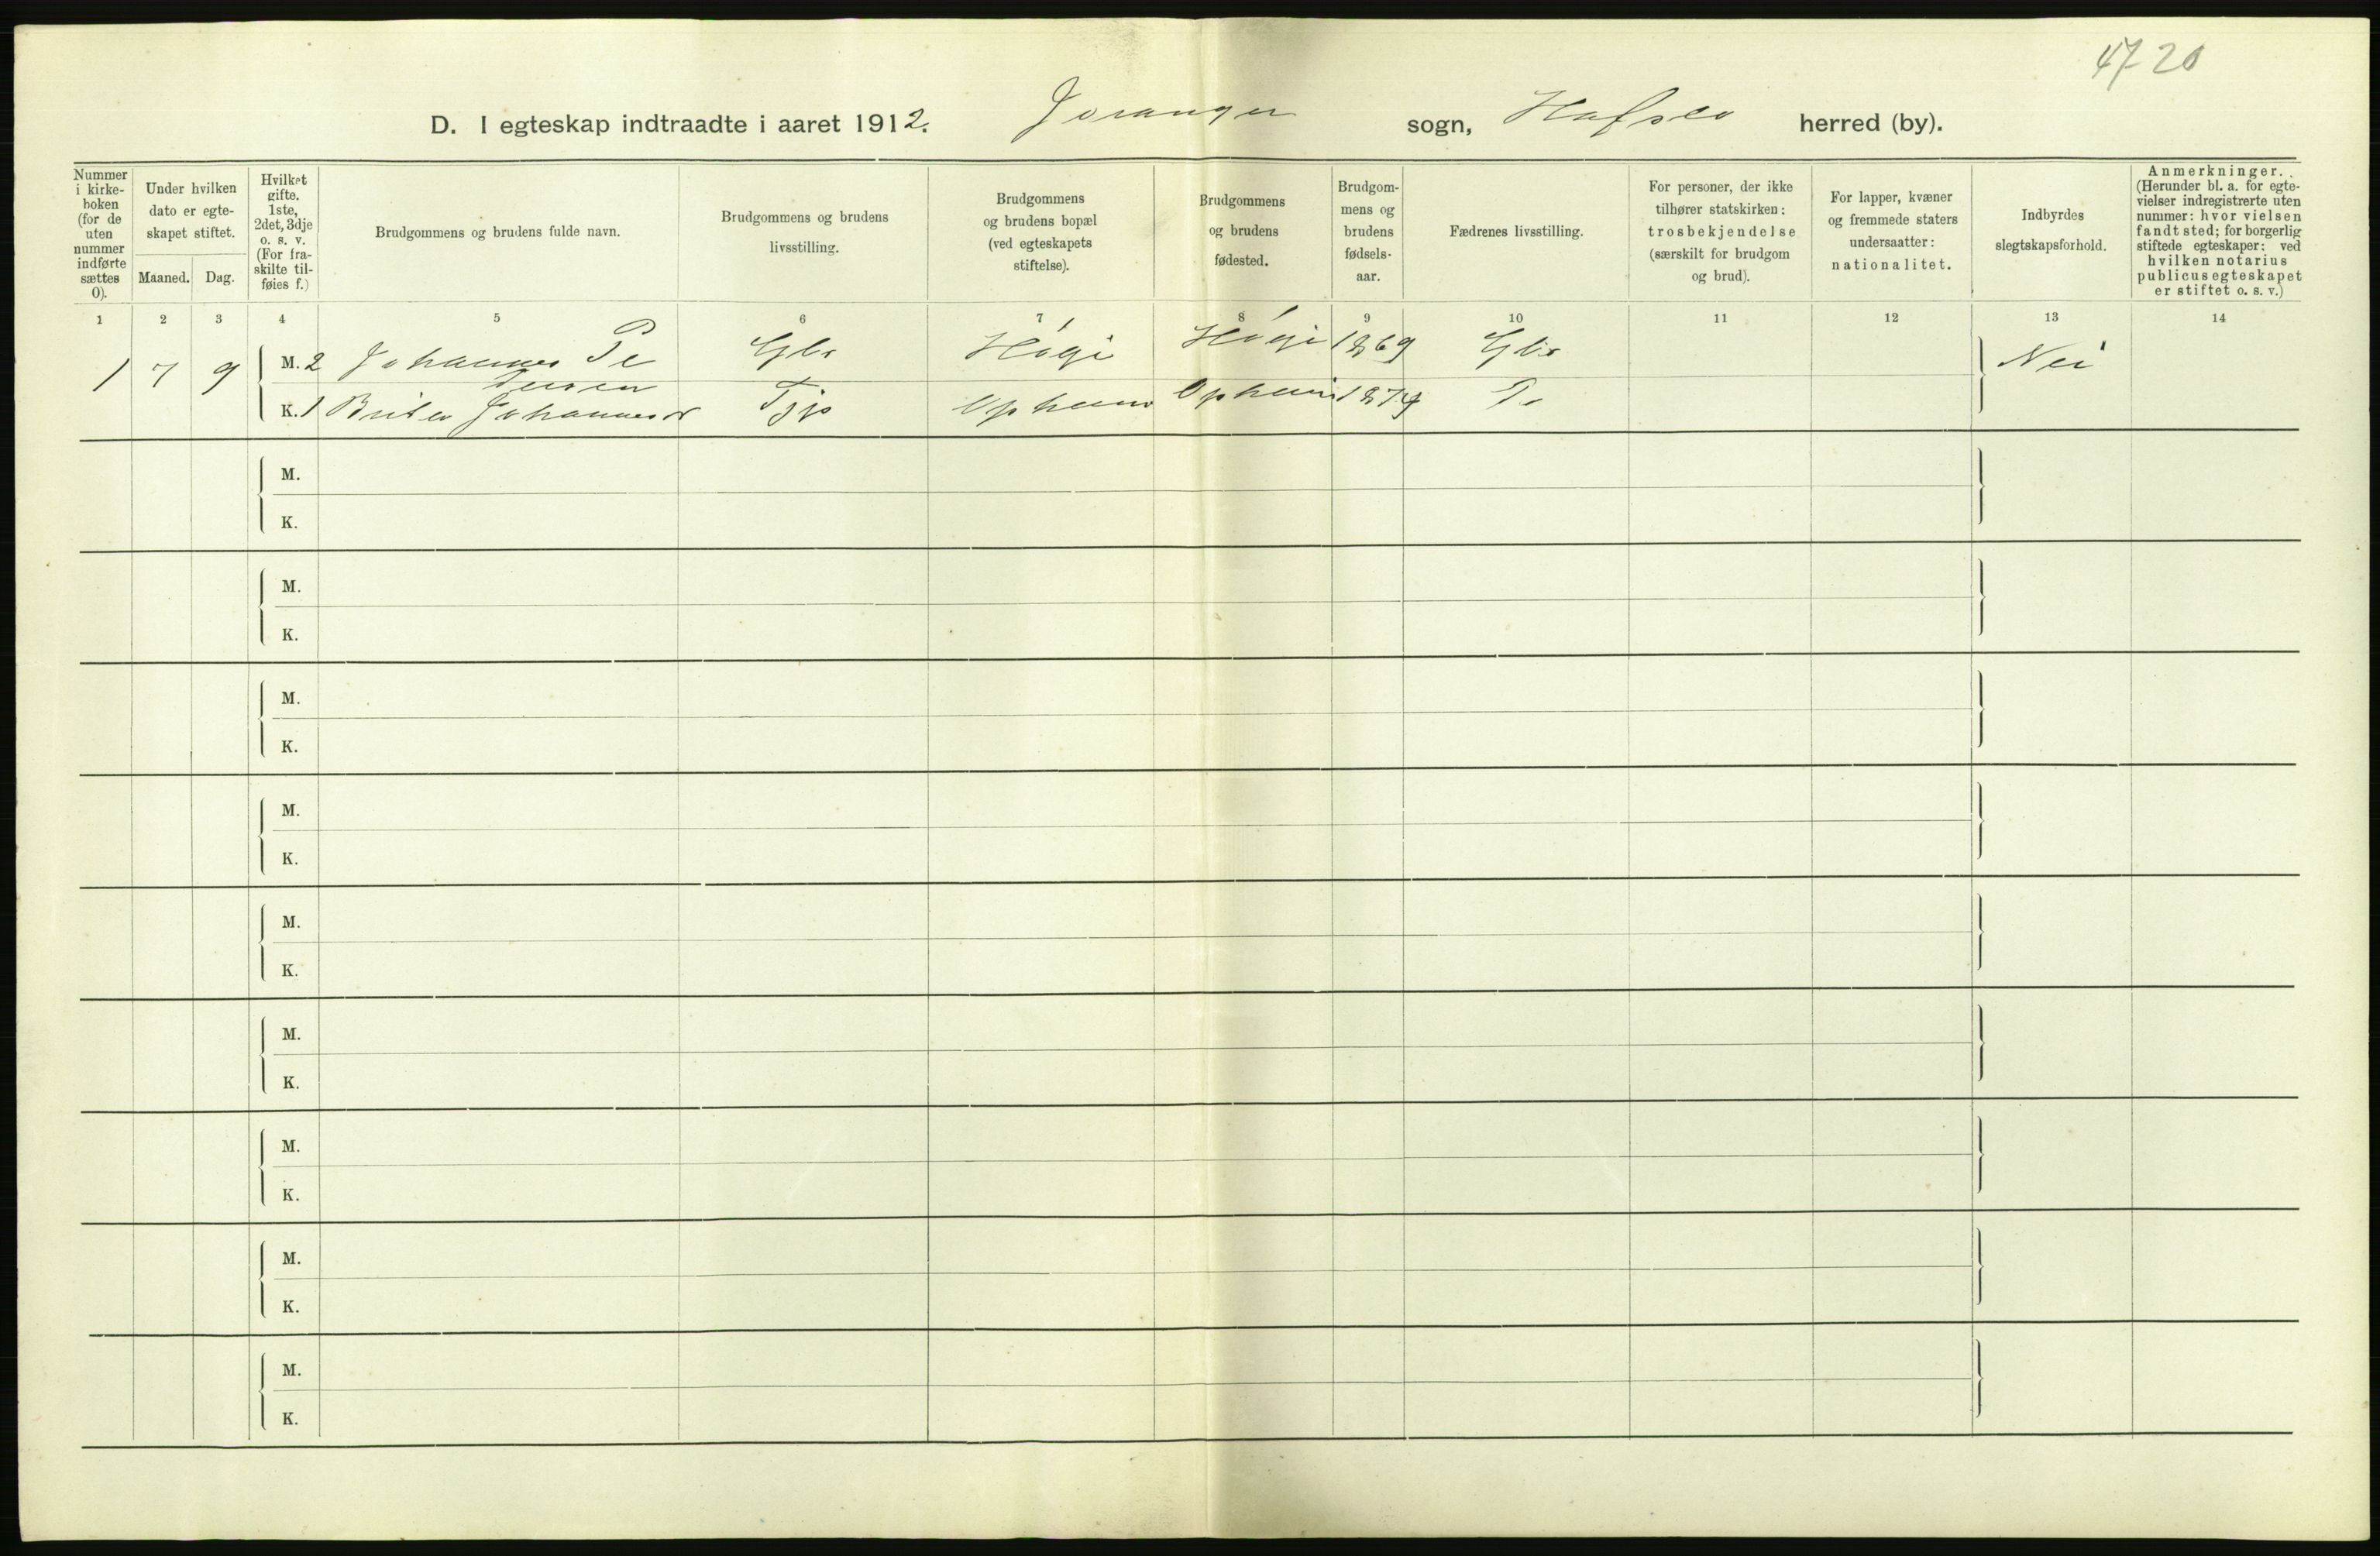 4720
D. I egteskap indtraadte i aaret 1912. Joranger sogn, Hafslo herred (by).
Nummer i kirke-boken (for de uten nummer indførte sættes 0).
Under hvilken dato er egte-skapet stiftet.
Maaned. Dag.
Hvilket gifte. 1ste, 2det, 3dje o. s. v. (For fra-skilte til-føies f.)
Brudgommens og brudens fulde navn.
Brudgommens og brudens livsstilling.
Brudgommens og brudens bopæl (ved egteskapets stiftelse).
Brudgommens og brudens fødested.
Brudgom-mens og brudens fødsels-aar.
Fædrenes livsstilling.
For personer, der ikke tilhører statskirken: trosbekjendelse (særskilt for brudgom og brud).
For lapper, kvæner og fremmede staters undersaatter: nationalitet.
Indbyrdes slegtskapsforhold.
Anmerkninger. (Herunder bl. a. for egte-vielser indregistrerte uten nummer: hvor vielsen fandt sted; for borgerlig stiftede egteskaper: ved hvilken notarius publicus egteskapet er stiftet o. s. v.)
1 2 3 4 5 6 7 8 9 10 11 12 13 14
1 7 9 M. 2 Johannes Pe Gbr Høgi Høgi 1869 Gbr Nei
dersen
K. 1 Johannesd Opheim Opheim
M.
K.
M.
K.
M.
K.
M.
K.
M.
K.
M.
K.
M.
K.
M.
K.
M.
K.